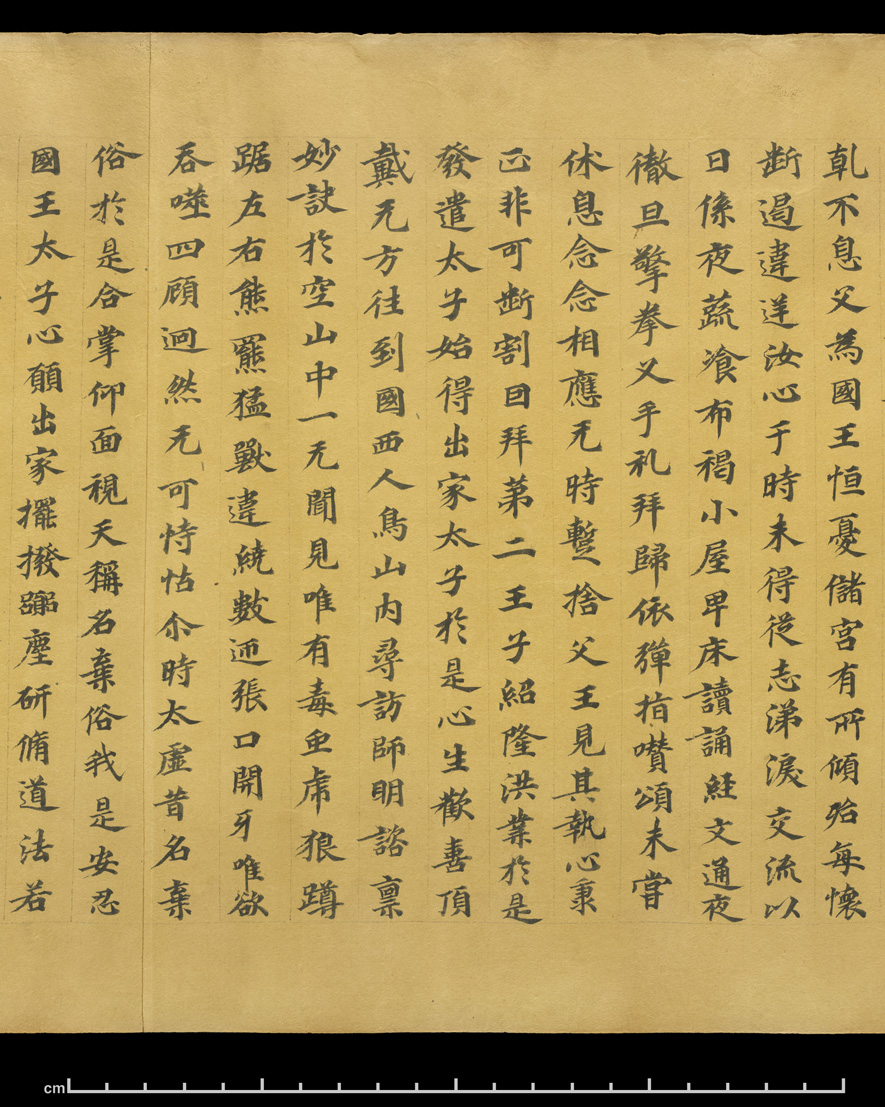 乹不息父為國王恒憂儲宮有所傾殆每懷
断遏違逆汝心于時未得從志涕淚交流以
日係夜蔬飡布褐小屋卑床讀誦経文通夜
徹旦擎拳叉手礼拜歸依彈指讚頌未甞
休息念念相應无時蹔捨父王見其執心秉
正非可断割回拜苐二王子紹隆洪業於是
發遣太子始得出家太子於是心生歡喜頂
戴无方往到國西人鳥山內尋訪師明諮稟
妙訣於空山中一无聞見唯有毒虫虎狼蹲
踞左右熊羆猛獸違繞數迊張口開牙唯欲
吞噬四顧迥然无可恃怙尒時太虛昔名棄
俗於是合掌仰面視天稱名棄俗我是安忍
國王太子心願出家擺撥嚻塵研脩道法若
cm